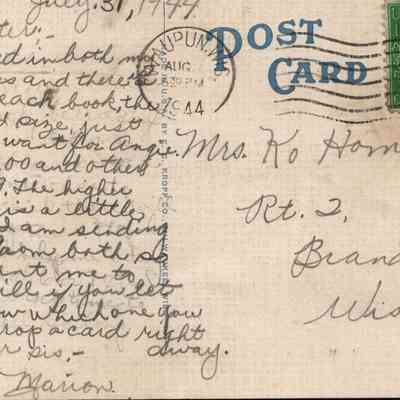 July 31, 1944
ter:-
ed in both my
es and there's
each book, the
d size, just
want for Angie.
.00 and other
9. The higher
is a little
I am sending
from both so
ant me to
ill if you let
w which one you
rop a card right
r sis,- away.
Marion.
AUPUN, WIS
AUG
PM
1944
POST
CARD
Mrs. Ko Hom
Rt. 2,
Brand
Wis